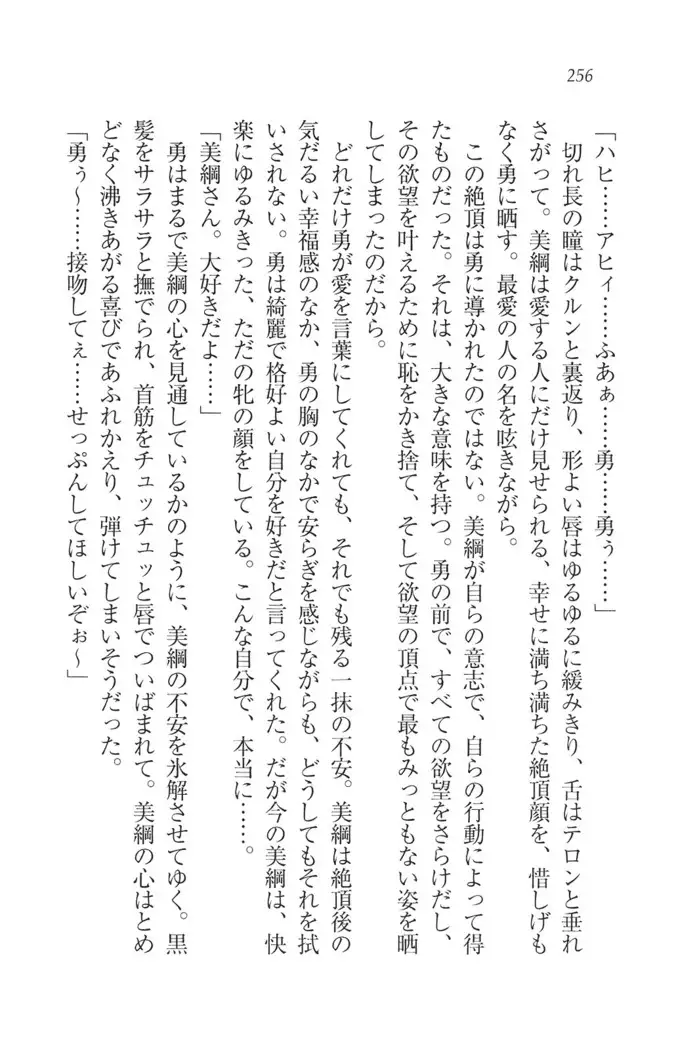 256
「ハヒ……アヒィ……ふあぁ……勇……勇ぅ……」
　切れ長の瞳はクルンと裏返り、形よい唇はゆるゆるに緩みきり、舌はテロンと垂れ
さがって。美綱は愛する人にだけ見せられる、幸せに満ち満ちた絶頂顔を、惜しげも
なく勇に晒す。最愛の人の名を呟きながら。
　この絶頂は勇に導かれたのではない。美綱が自らの意志で、自らの行動によって得
たものだった。それは、大きな意味を持つ。勇の前で、すべての欲望をさらけだし、
その欲望を叶えるために恥をかき捨て、そして欲望の頂点で最もみっともない姿を晒
してしまったのだから。
　どれだけ勇が愛を言葉にしてくれても、それでも残る一抹の不安。美綱は絶頂後の
気だるい幸福感のなか、勇の胸のなかで安らぎを感じながらも、どうしてもそれを拭
いされない。勇は綺麗で格好よい自分を好きだと言ってくれた。だが今の美綱は、快
楽にゆるみきった、ただの牝の顔をしている。こんな自分で、本当に……。
「美綱さん。大好きだよ……」
　勇はまるで美綱の心を見通しているかのように、美綱の不安を氷解させてゆく。黒
髪をサラサラと撫でられ、首筋をチュッチュッと唇でついばまれて。美綱の心はとめ
どなく沸きあがる喜びであふれかえり、弾けてしまいそうだった。
「勇ぅ～……接吻してぇ……せっぷんしてほしいぞぉ～」